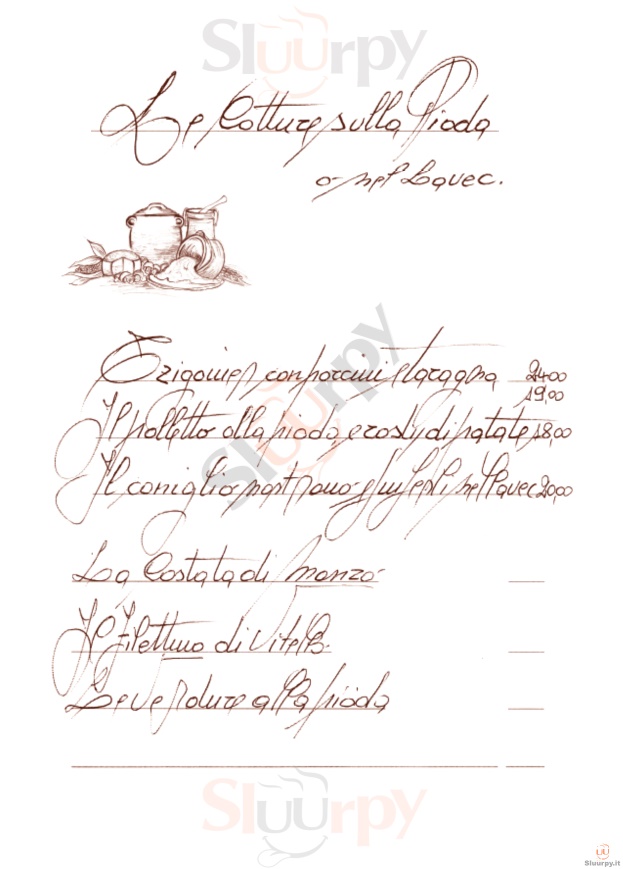 Sluurpy
Le Cotture sulla Pioda
o nel Lavec.
con porcini e taragna 24,00
19,00
Il polletto alla pioda e rosty di patate 18,00
Il coniglio nostrano funghi nel lavec 20,00
Sluurpy
La Costata di manzo
Il Filettino di Vitello
Le verdure alla pioda
Sluurpy
Sluurpy.it